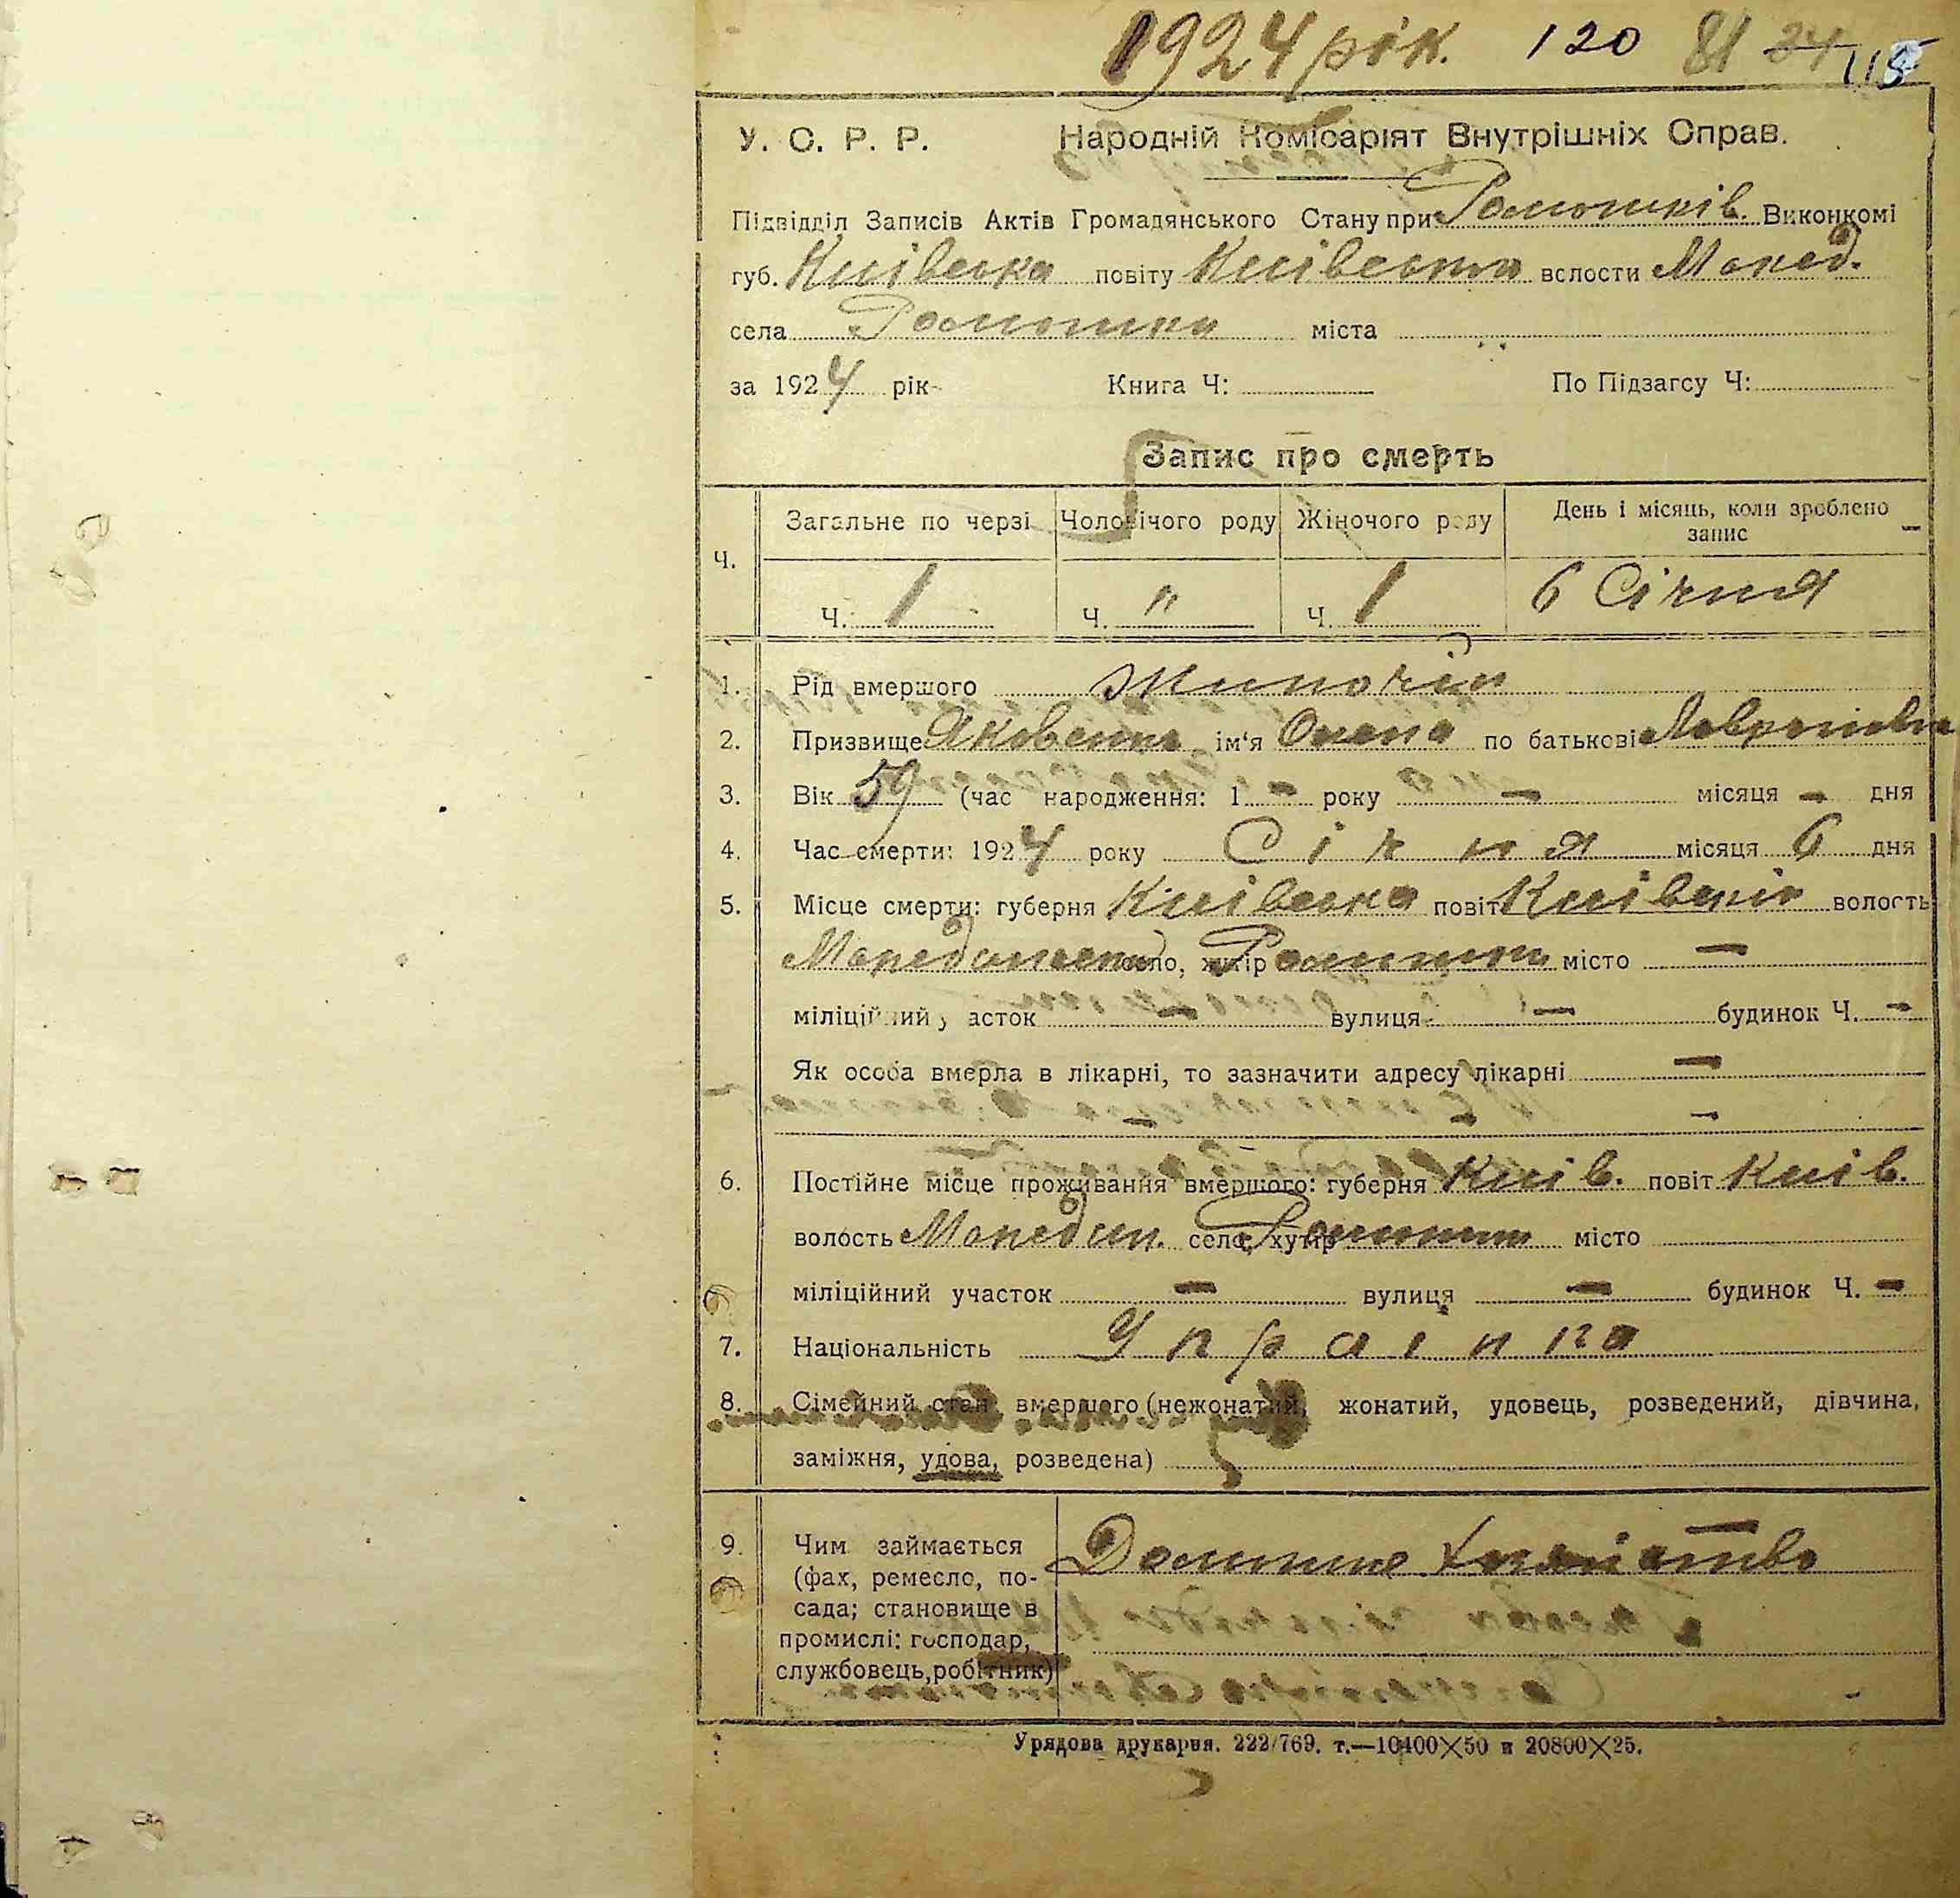 1924 рік. 120 81 34 115
У. С. Р. Р. Народній Комісаріят Внутрішніх Справ.
Підвідділ Записів Актів Громадянського Стану при Ромашків. Виконкомі
губ. Київська повіту Київська волости Макед.
села Ромашки міста
за 1924 рік Книга Ч: По Підзагсу Ч:
Запис про смерть
Ч. Загальне по черзі Чоловічого роду Жіночого роду День і місяць, коли зроблено запис
Ч. 1 Ч. " Ч. 1 6 Січня
1. Рід вмершого Жиночій
2. Призвище Яковенко ім'я Олена по батькові
3. Вік 59 (час народження: 1 - року - місяця - дня
4. Час смерти: 1924 року Січня місяця 6 дня
5. Місце смерти: губерня Київська повіт Київській волость
Македонська село, хутір Ромашки місто —
міліційний участок — вулиця — будинок Ч. —
Як особа вмерла в лікарні, то зазначити адресу лікарні —
— — —
6. Постійне місце проживання вмершого: губерня Київ. повіт Київ.
волость Македон. село, хутір Ромашки місто
міліційний участок — вулиця — будинок Ч. —
7. Національність Українка
8. Сімейний стан вмершого (нежонатий, жонатий, удовець, розведений, дівчина,
заміжня, удова, розведена)
9. Чим займається Домашне
(фах, ремесло, по-
сада; становище в
промислі: господар,
службовець, робітник)
Урядова друкарня. 222/769. т.—10400×50 и 20800×25.